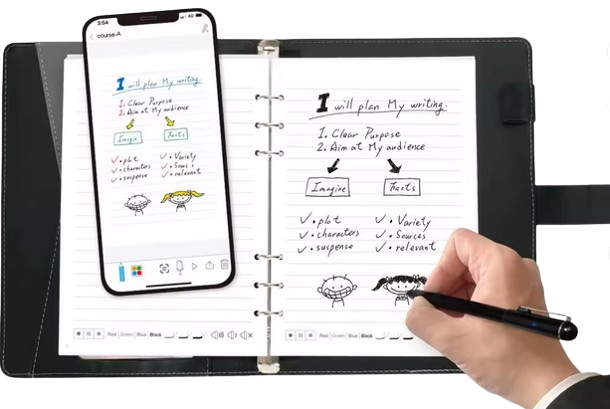 3:54
4G
course-A
I will plan My writing.
1. Clear Purpose
2. Aim at My audience
Imagin Facts
✓ • plot ✓ • Variety
✓ • characters ✓ • Sourc s
✓ • suspense ✓ • relevant
I will plan My writing.
1. Clear Purpose
2. Aim at My audience
Imagine Facts
✓ • plot ✓ • Variety
✓ • characters ✓ • Sources
✓ • suspense ✓ • relevant
Red Green Blue Black
Red Green Blue Black